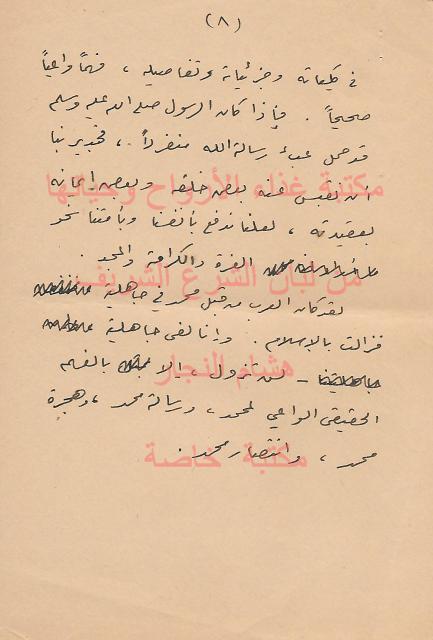 (٨)
في كلياته وجزئياته وتفاصيله ، فهماً واعياً
صحيحاً . فإذا كان الرسول صلى الله عليه وسلم
قد حمل عبء رسالة الله منفرداً ، فجدير بنا
أن نقبس منه بعض خلقه وبعض إيمانه
مكتبة غذاء الأرواح وحياتها
بعقيدته ، لعلنا ندفع بأنفسنا وبأمتنا نحو
العزة والكرامة والمجد .
من لبان الشرع الشريف
لقد كان العرب من قبل محمد في جاهلية
فزالت بالإسلام . وإنا لفي جاهلية
هشام النجار
لن تزول ، إلا بالفهم
الحقيقي الواعي لمحمد ، ورسالة محمد ، وهجرة
محمد ، وانتصار محمد .
مكتبة خاصة